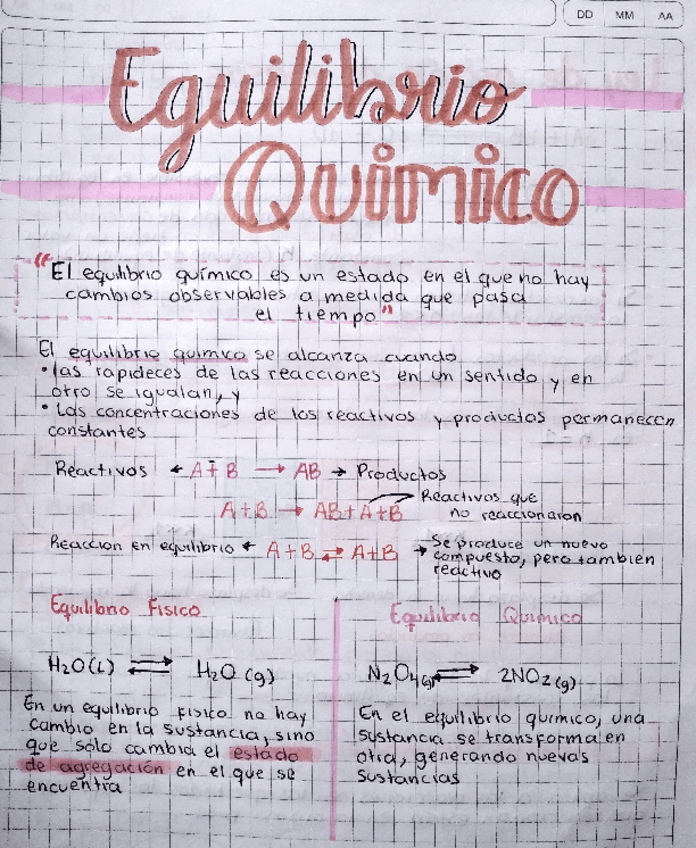 DD MM AA
Equilibrio
Químico
"El equilibrio químico es un estado en el que no hay
cambios observables a medida que pasa
el tiempo"
El equilibrio químico se alcanza cuando
• las rapideces de las reacciones en un sentido y en
otro se igualan, y
• Las concentraciones de los reactivos y productos permanecen
constantes
Reactivos ← A + B → AB → Productos
A + B → AB + A + B → Reactivos que
no reaccionaron
Reaccion en equilibrio ← A + B ⇄ A + B → Se produce un nuevo
compuesto, pero también
reactivo
Equilibrio Fisico
H₂O(L) ⇄ H₂O (g)
En un equilibrio fisico no hay
cambio en la sustancia, sino
que sólo cambia el estado
de agregación en el que se
encuentra
Equilibrio Quimico
N₂O₄(g) ⇄ 2NO₂(g)
En el equilibrio quimico, una
sustancia se transforma en
otra, generando nuevas
sustancias